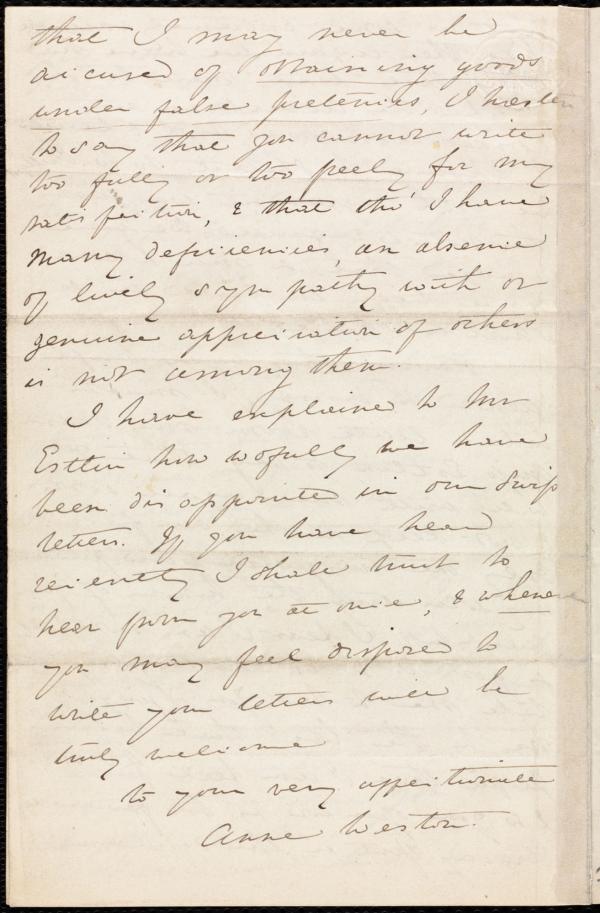 that I may never be
accused of obtaining goods
under false pretences, I hasten
to say that you cannot write
too fully or too freely for my
satisfaction, & that tho' I have
many deficiencies, an absence
of lively sympathy with or
genuine appreciation of others
is not among them.
I have explained to Mr
Estlin how wofully we have
been disappointed in our Swiss
letters. If you have heard
recently I shall trust to
hear from you at once, & whenever
you may feel disposed to
write your letters will be
truly welcome
to your very affectionate
Anne Weston.